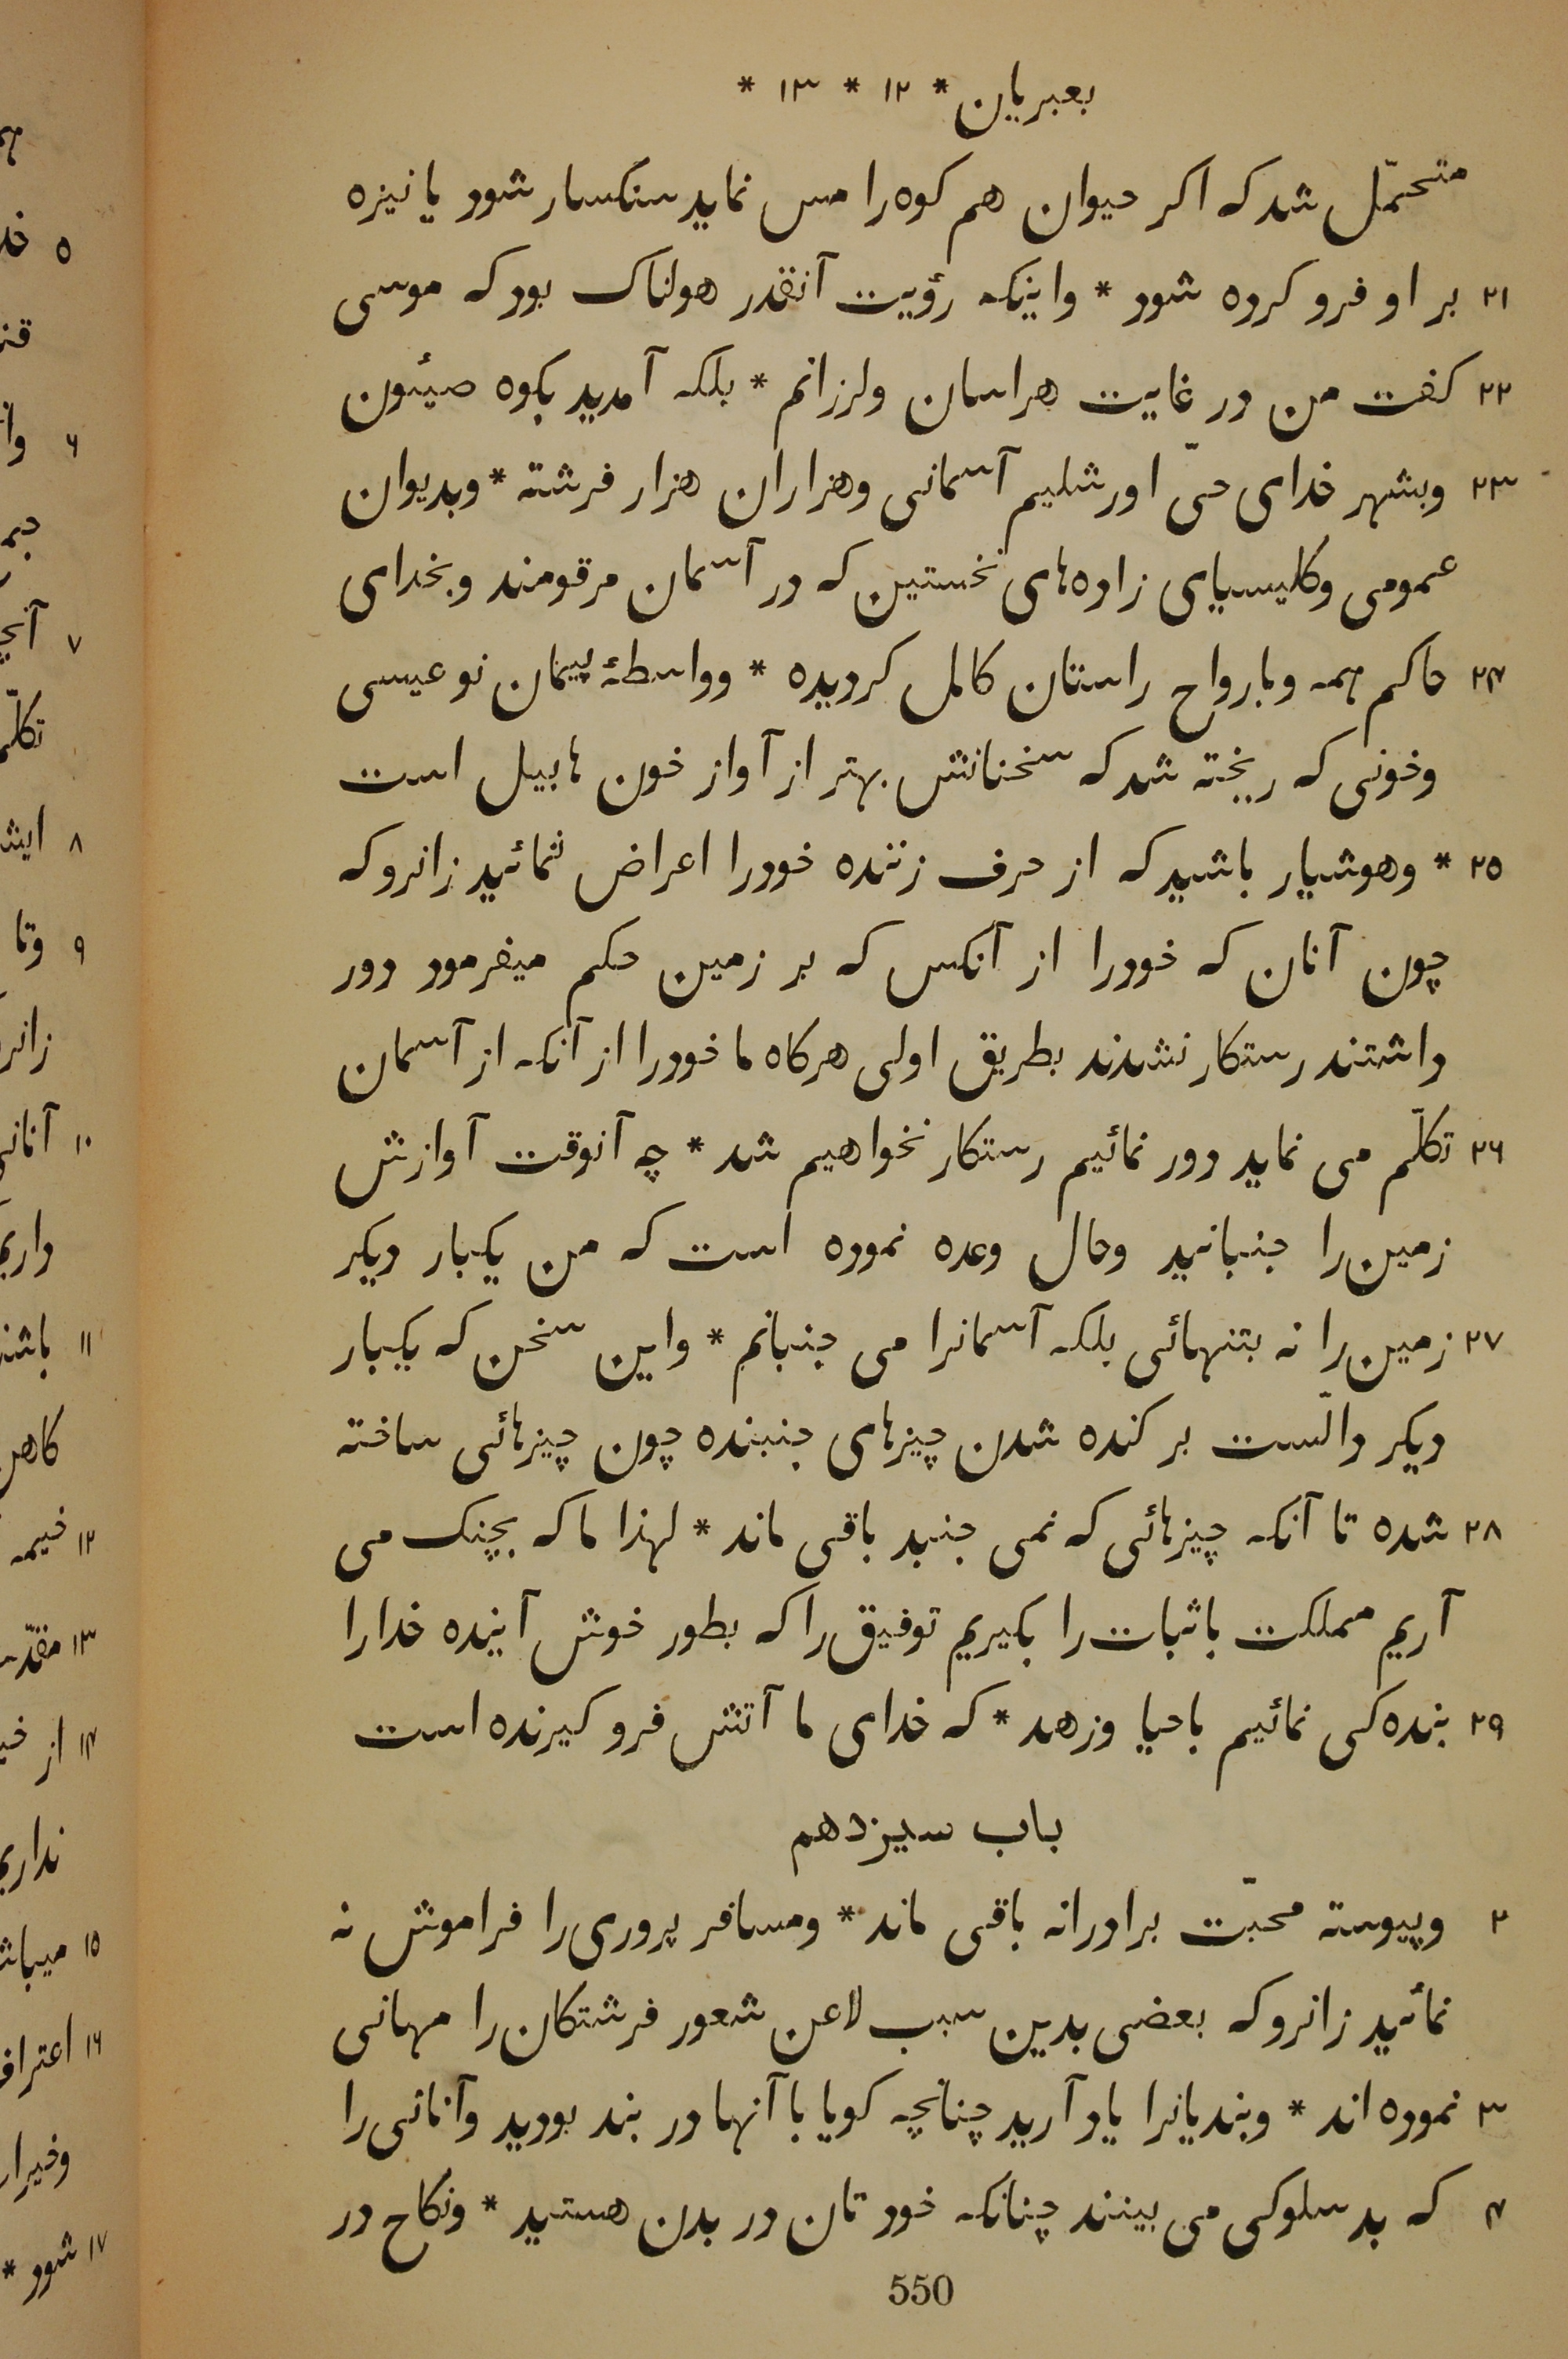 بعبریان * ۱۲ * ۱۳ *
متحمّل شد که اکر حیوان هم کوه را مس نماید سنکسار شود یا نیزه
۲۱ بر او فرو کرده شود * واینکه رؤیت آنقدر هولناک بود که موسی
۲۲ کفت من در غایت هراسان ولرزانم * بلکه آمدید بکوه صیئون
۲۳ وبشهر خدای حیّ اورشلیم آسمانی وهزاران هزار فرشته * وبدیوان
عمومی وکلیسیای زاده‌های نخستین که در آسمان مرقومند وبخدای
۲۴ حاکم همه وبارواح راستان کامل کردیده * وواسطهٔ پیمان نو عیسی
وخونی که ریخته شد که سخنانش بهتر از آواز خون هابیل است
۲۵ * وهوشیار باشید که از حرف زننده خودرا اعراض ننمائید زانرو که
چون آنان که خودرا از آنکس که بر زمین حکم میفرمود دور
داشتند رستکار نشدند بطریق اولی هرکاه ما خودرا از آنکه از آسمان
۲۶ تکلّم می نماید دور نمائیم رستکار نخواهیم شد * چه آنوقت آوازش
زمین را جنبانید وحال وعده نموده است که من یکبار دیکر
۲۷ زمین را نه بتنهائی بلکه آسمانرا می جنبانم * واین سخن که یکبار
دیکر دالّست بر کنده شدن چیزهای جنبنده چون چیزهائی ساخته
۲۸ شده تا آنکه چیزهائی که نمی جنبد باقی ماند * لهذا ما که بچنک می
آریم مملکت باثبات را بکیریم توفیق را که بطور خوش آینده خدارا
۲۹ بنده‌کی نمائیم باحیا وزهد * که خدای ما آتش فرو کیرنده است
باب سیزدهم
۲ وپیوسته محبّت برادرانه باقی ماند * ومسافر پروری را فراموش نه
نمائید زانرو که بعضی بدین سبب لاعن شعور فرشتکان را مهمانی
۳ نموده‌اند * وبندیانرا یاد آرید چنانچه کویا با آنها در بند بودید وآنانی را
۴ که بد سلوکی می بینند چنانکه خود تان در بدن هستید * ونکاح در
550
۵
۶
۷
۸
۹ وتا
۱۰
۱۱
۱۲ خیمه
۱۳
۱۴ از
۱۵
۱۶
۱۷ شود *